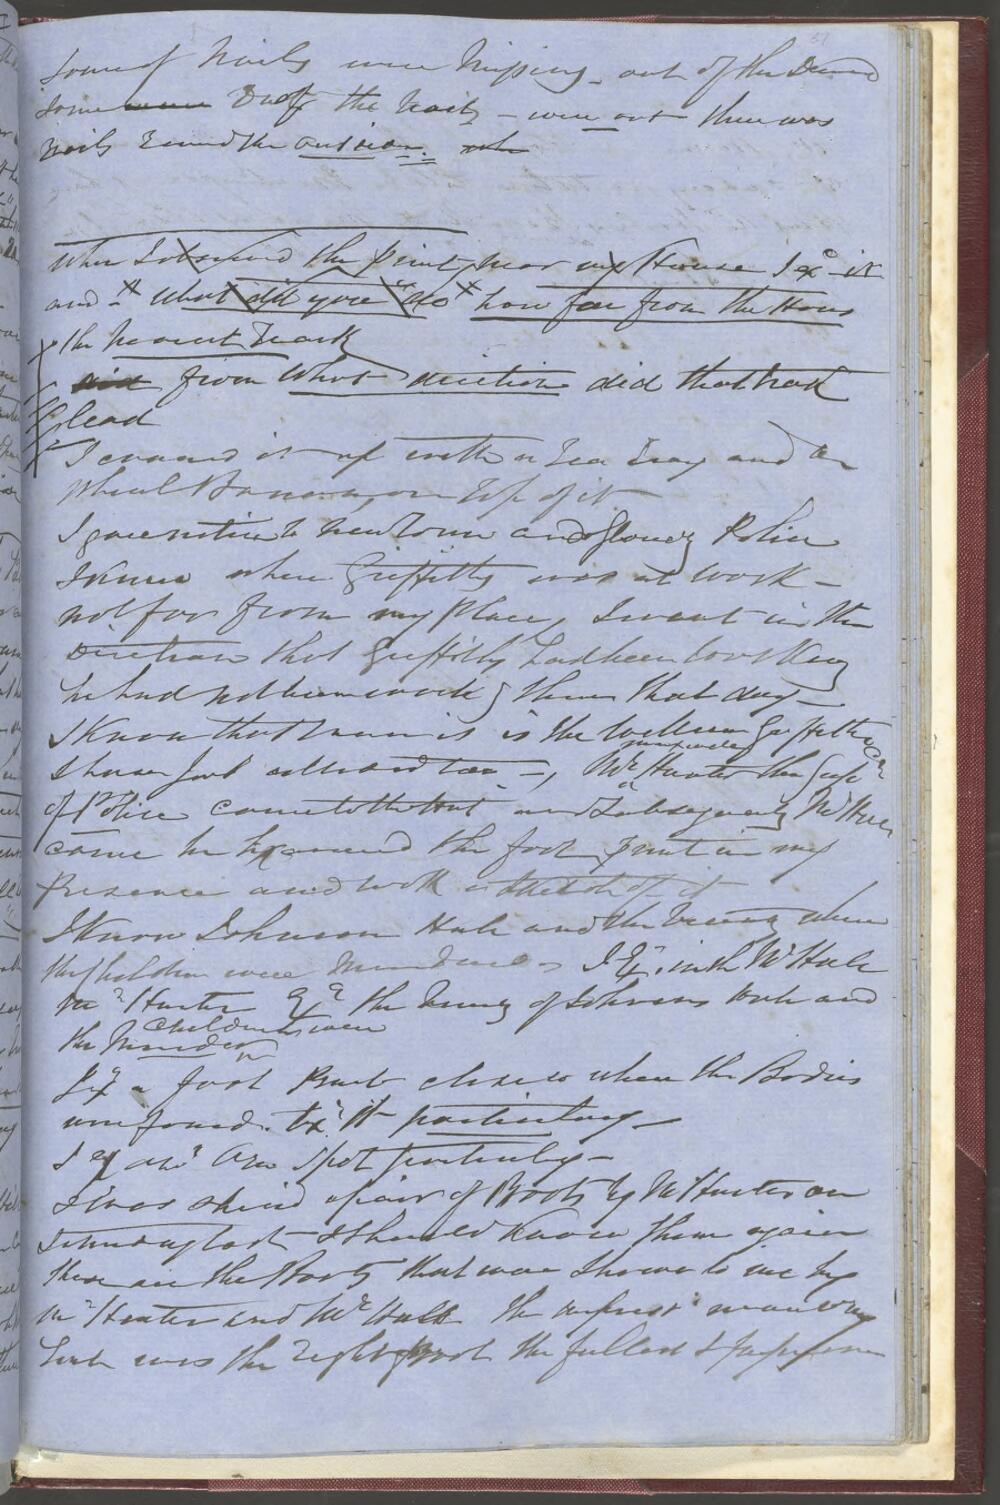 some of Nails were Missing out of the
some were the Nails - were out there was
Nails Round the outside.
When I observed the print near my House I exd it
and "what did you do" how far from the House
the nearest Track
did from what direction did that track
lead
I covered it up with a Tea Tray and
Wheel Barrow on top of it
I gave notice to New Town and Glenorchy Police
I knew where Griffiths was at work -
not far from my place, I went in the
direction that Griffiths had been working
he had not been working there that day -
I know that man it is the William Griffiths
I have just , Mr Hunter the Supt
of Police came to the Hut and subsequently Mr Hull
came he examined the foot print in my
presence and took a sketch of it
I know Johnsons Hut and the vicinity where
the children were Murdered - I Exd with Mr Hull
Mr Hunter the vicinity of Johnsons Hut and
children were
the Murder
I exd a foot print close to where the Bodies
were found. Exd it particularly -
I spot particularly -
I was shewd a pair of Boots by Mr Hunter on
last I should know them again
these are the Boots that were shown to me by
Mr Hunter and Mr Hull the my
was the right foot the fullest Impression